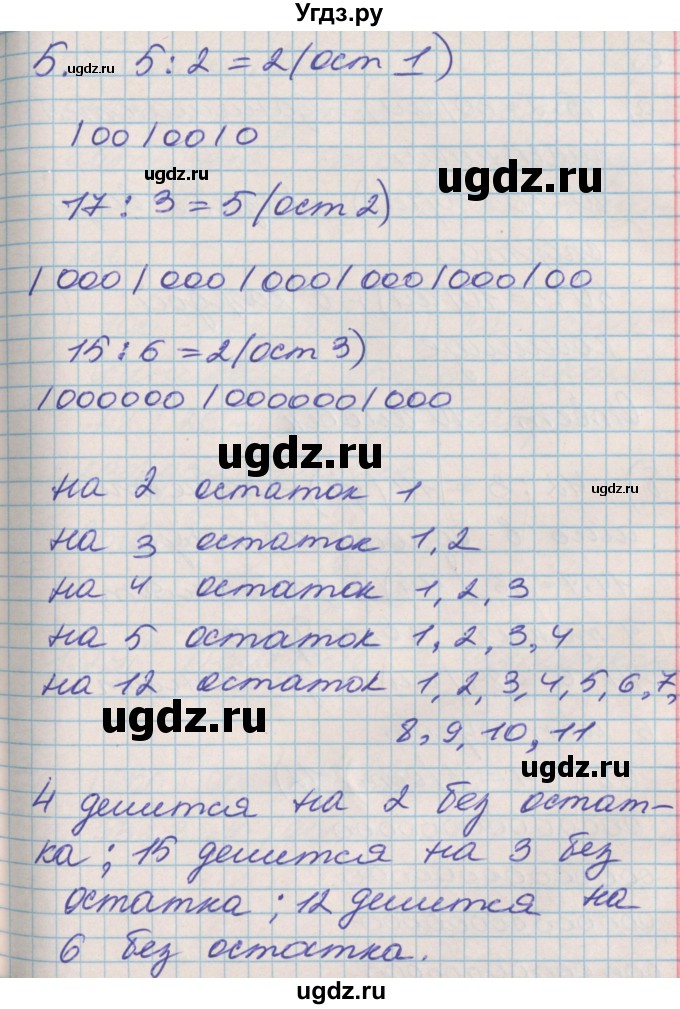 Угдз.ру
5. 5 : 2 = 2 (ост 1)
ugdz.ru
| 00 | 00 | 0
ugdz.ru
ugdz.ru
17 : 3 = 5 (ост 2)
| 000 | 000 | 000 | 000 | 000 | 00
15 : 6 = 2 (ост 3)
| 000000 | 000000 | 000
ugdz.ru
на 2 остаток 1
ugdz.ru
на 3 остаток 1, 2
на 4 остаток 1, 2, 3
на 5 остаток 1, 2, 3, 4
на 12 остаток 1, 2, 3, 4, 5, 6, 7,
ugdz.ru
8, 9, 10, 11
ugdz.ru
4 делится на 2 без остат-
ка; 15 делится на 3 без
остатка; 12 делится на
6 без остатка.
ugdz.ru